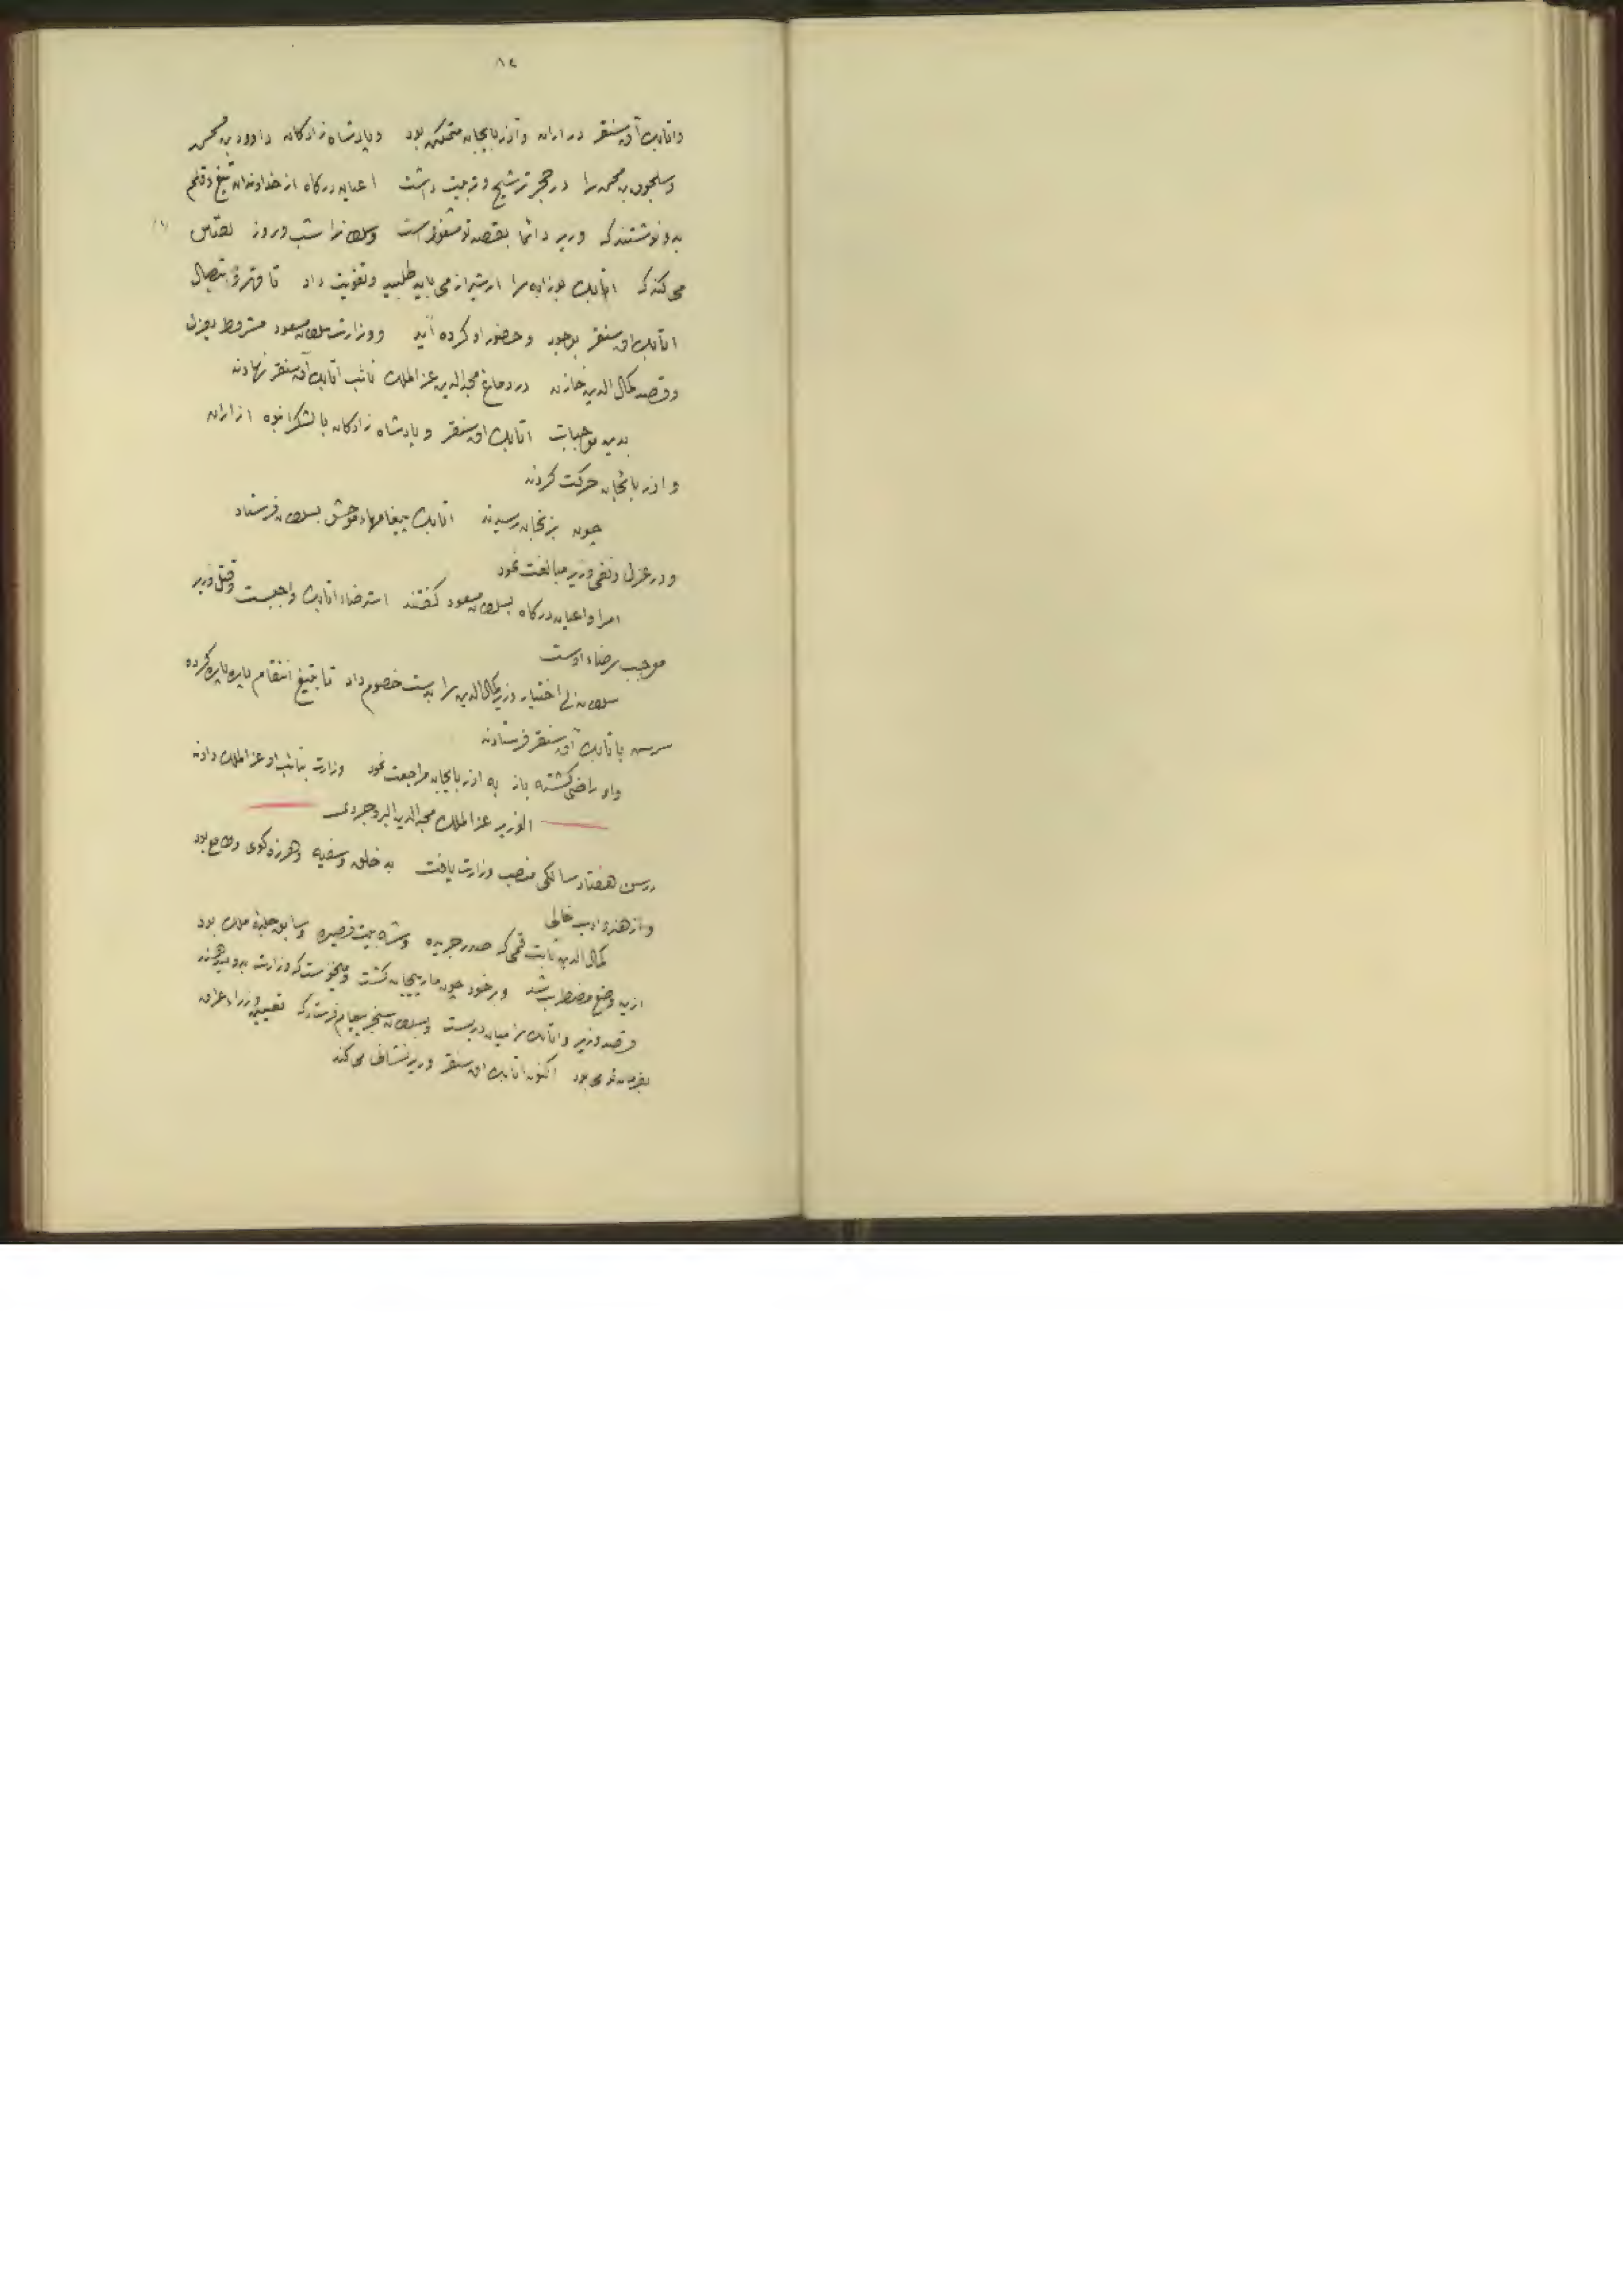 ۸۲
واتابك آق سنقر در اران و آذربایجان متمکن بود وپادشاه زادکان داوود بن محمد
وسلجوق بن محمد را در حجر ترشیح و تربیت داشت اعیان درکاه از خداوندان تیغ وقلم
بدو نوشتند که وزیر دائما بقصد تو مشغولست وسلطانرا شب و روز
می کند که اتابك بوزابه را از شیراز می باید طلبید وتقویت داد تا قهر و استیصال
اتابك اق سنقر بوجود وحضور او کرده آید ووزارت سلطان مسعود مشروط بعزل
وقصد کمال الدین خازن در دماغ مجدالدین عزالملك نائب اتابك آق سنقر نهادند
بدین موجبات اتابك اق سنقر و پادشاه زادکان با لشکر انبوه از اران
و اذربائجان حرکت کردند
چون بزنجان رسیدند اتابك پیغامهاء موحش بسلطان فرستاد
ودر عزل ونفی وزیر مبالغت نمود
امرا واعیان درکاه بسلطان مسعود کفتند استرضاء اتابك واجبست وقتل وزیر
موجب رضاء اوست
سلطان بی اختیار وزیر کمال الدین را بدست خصوم داد تا بتیغ انتقام پاره پاره کرده
سرس باتابك آق سنقر فرستادند
واو راضی کشته باز به اذربایجان مراجعت نمود وزارت بنائب او عزالملك دادند
الوزیر عزالملك مجدالدین البروجردی
در سن هفتاد سالکی منصب وزارت یافت بد خلق وسفیه وهرزه کوی وطامع بود
واز هنر وادب خالی
کمال الدین ثابت قمی که صدر جریده وشاه بیت قصیده وسابق حلبهٔ ملك بود
ازین وضع مضطرب شد و بر خود چون مار پیچان کشت ومیخواست که وزارت بدو دهند
قصد وزیر واتابك را میان دربست وبسلطان سنجر پیغام فرستاد که تعیین وزراء عراق
بفرمان تو می بود اکنون اتابك اق سنقر وزیر نشانی می کند